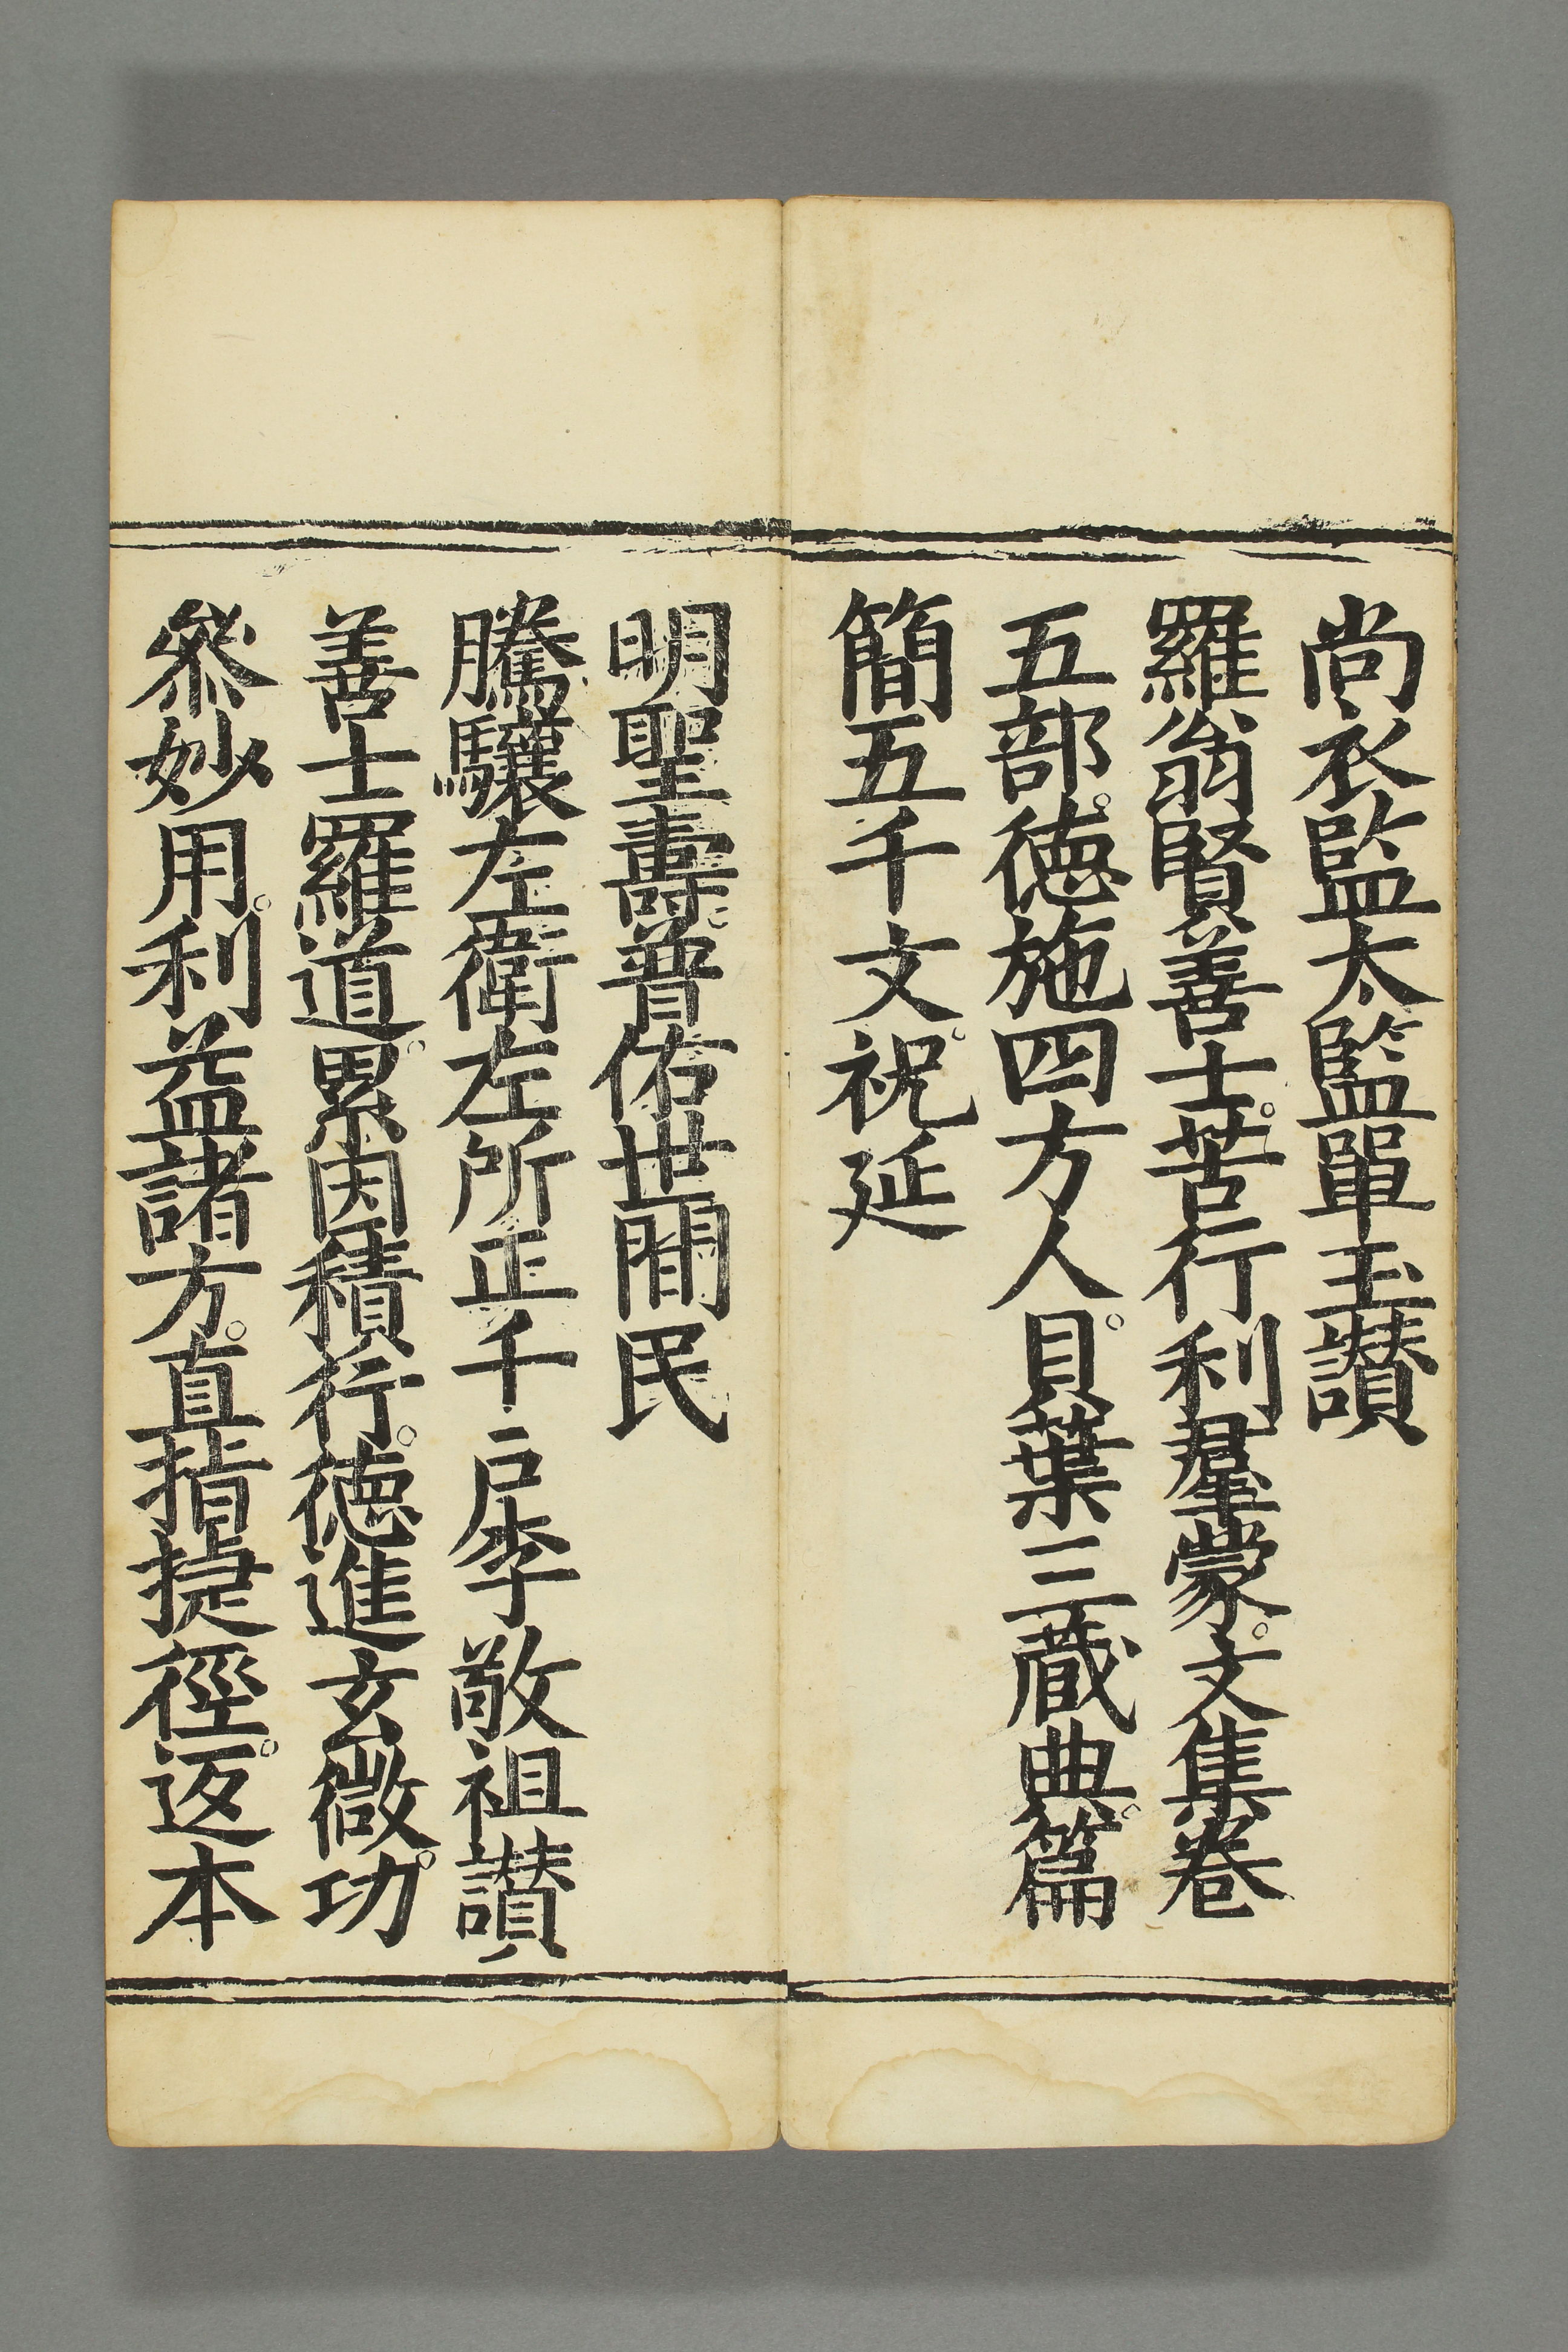 尚衣監太監單玉讃
羅翁賢善士。苦行利羣蒙。文集卷
五部。徳施四方人。貝葉三蔵典。篇
簡五千文。祝延
明聖壽。普佑世間民
騰驤左衛左所正千戸李敬祖讃
善士羅道。累因積行。徳進玄微功。
叅妙用。利益諸方。直指捷徑。返本